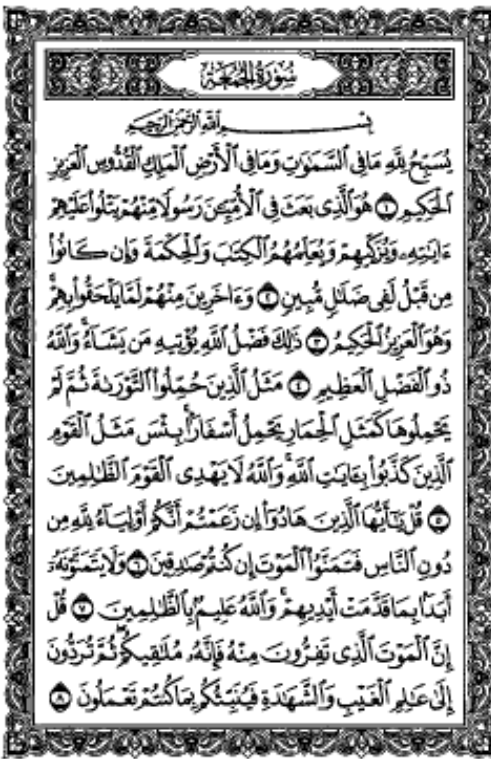 سُورَةُ الجُمُعَةِ
بِسْمِ اللَّهِ الرَّحْمَٰنِ الرَّحِيمِ
يُسَبِّحُ لِلَّهِ مَا فِي السَّمَٰوَٰتِ وَمَا فِي الْأَرْضِ الْمَلِكِ الْقُدُّوسِ الْعَزِيزِ
الْحَكِيمِ ۝١ هُوَ الَّذِي بَعَثَ فِي الْأُمِّيِّينَ رَسُولًا مِّنْهُمْ يَتْلُوا عَلَيْهِمْ
ءَايَٰتِهِ وَيُزَكِّيهِمْ وَيُعَلِّمُهُمُ الْكِتَٰبَ وَالْحِكْمَةَ وَإِن كَانُوا
مِن قَبْلُ لَفِي ضَلَٰلٍ مُّبِينٍ ۝٢ وَءَاخَرِينَ مِنْهُمْ لَمَّا يَلْحَقُوا بِهِمْ
وَهُوَ الْعَزِيزُ الْحَكِيمُ ۝٣ ذَٰلِكَ فَضْلُ اللَّهِ يُؤْتِيهِ مَن يَشَاءُ وَاللَّهُ
ذُو الْفَضْلِ الْعَظِيمِ ۝٤ مَثَلُ الَّذِينَ حُمِّلُوا التَّوْرَىٰةَ ثُمَّ لَمْ
يَحْمِلُوهَا كَمَثَلِ الْحِمَارِ يَحْمِلُ أَسْفَارًا بِئْسَ مَثَلُ الْقَوْمِ
الَّذِينَ كَذَّبُوا بِـَٔايَٰتِ اللَّهِ وَاللَّهُ لَا يَهْدِي الْقَوْمَ الظَّٰلِمِينَ
۝٥ قُلْ يَٰأَيُّهَا الَّذِينَ هَادُوا إِن زَعَمْتُمْ أَنَّكُمْ أَوْلِيَاءُ لِلَّهِ مِن
دُونِ النَّاسِ فَتَمَنَّوُا الْمَوْتَ إِن كُنتُمْ صَٰدِقِينَ ۝٦ وَلَا يَتَمَنَّوْنَهُ
أَبَدًا بِمَا قَدَّمَتْ أَيْدِيهِمْ وَاللَّهُ عَلِيمٌ بِالظَّٰلِمِينَ ۝٧ قُلْ
إِنَّ الْمَوْتَ الَّذِي تَفِرُّونَ مِنْهُ فَإِنَّهُ مُلَٰقِيكُمْ ثُمَّ تُرَدُّونَ
إِلَىٰ عَٰلِمِ الْغَيْبِ وَالشَّهَٰدَةِ فَيُنَبِّئُكُم بِمَا كُنتُمْ تَعْمَلُونَ ۝٨